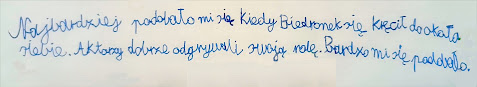 Najbardziej poddbało mi się kiedy Biedronek się kręcił dookała
siebie. Aktorzy dobrze odgrywali swoją rolę. Bardzo mi się poddbało.